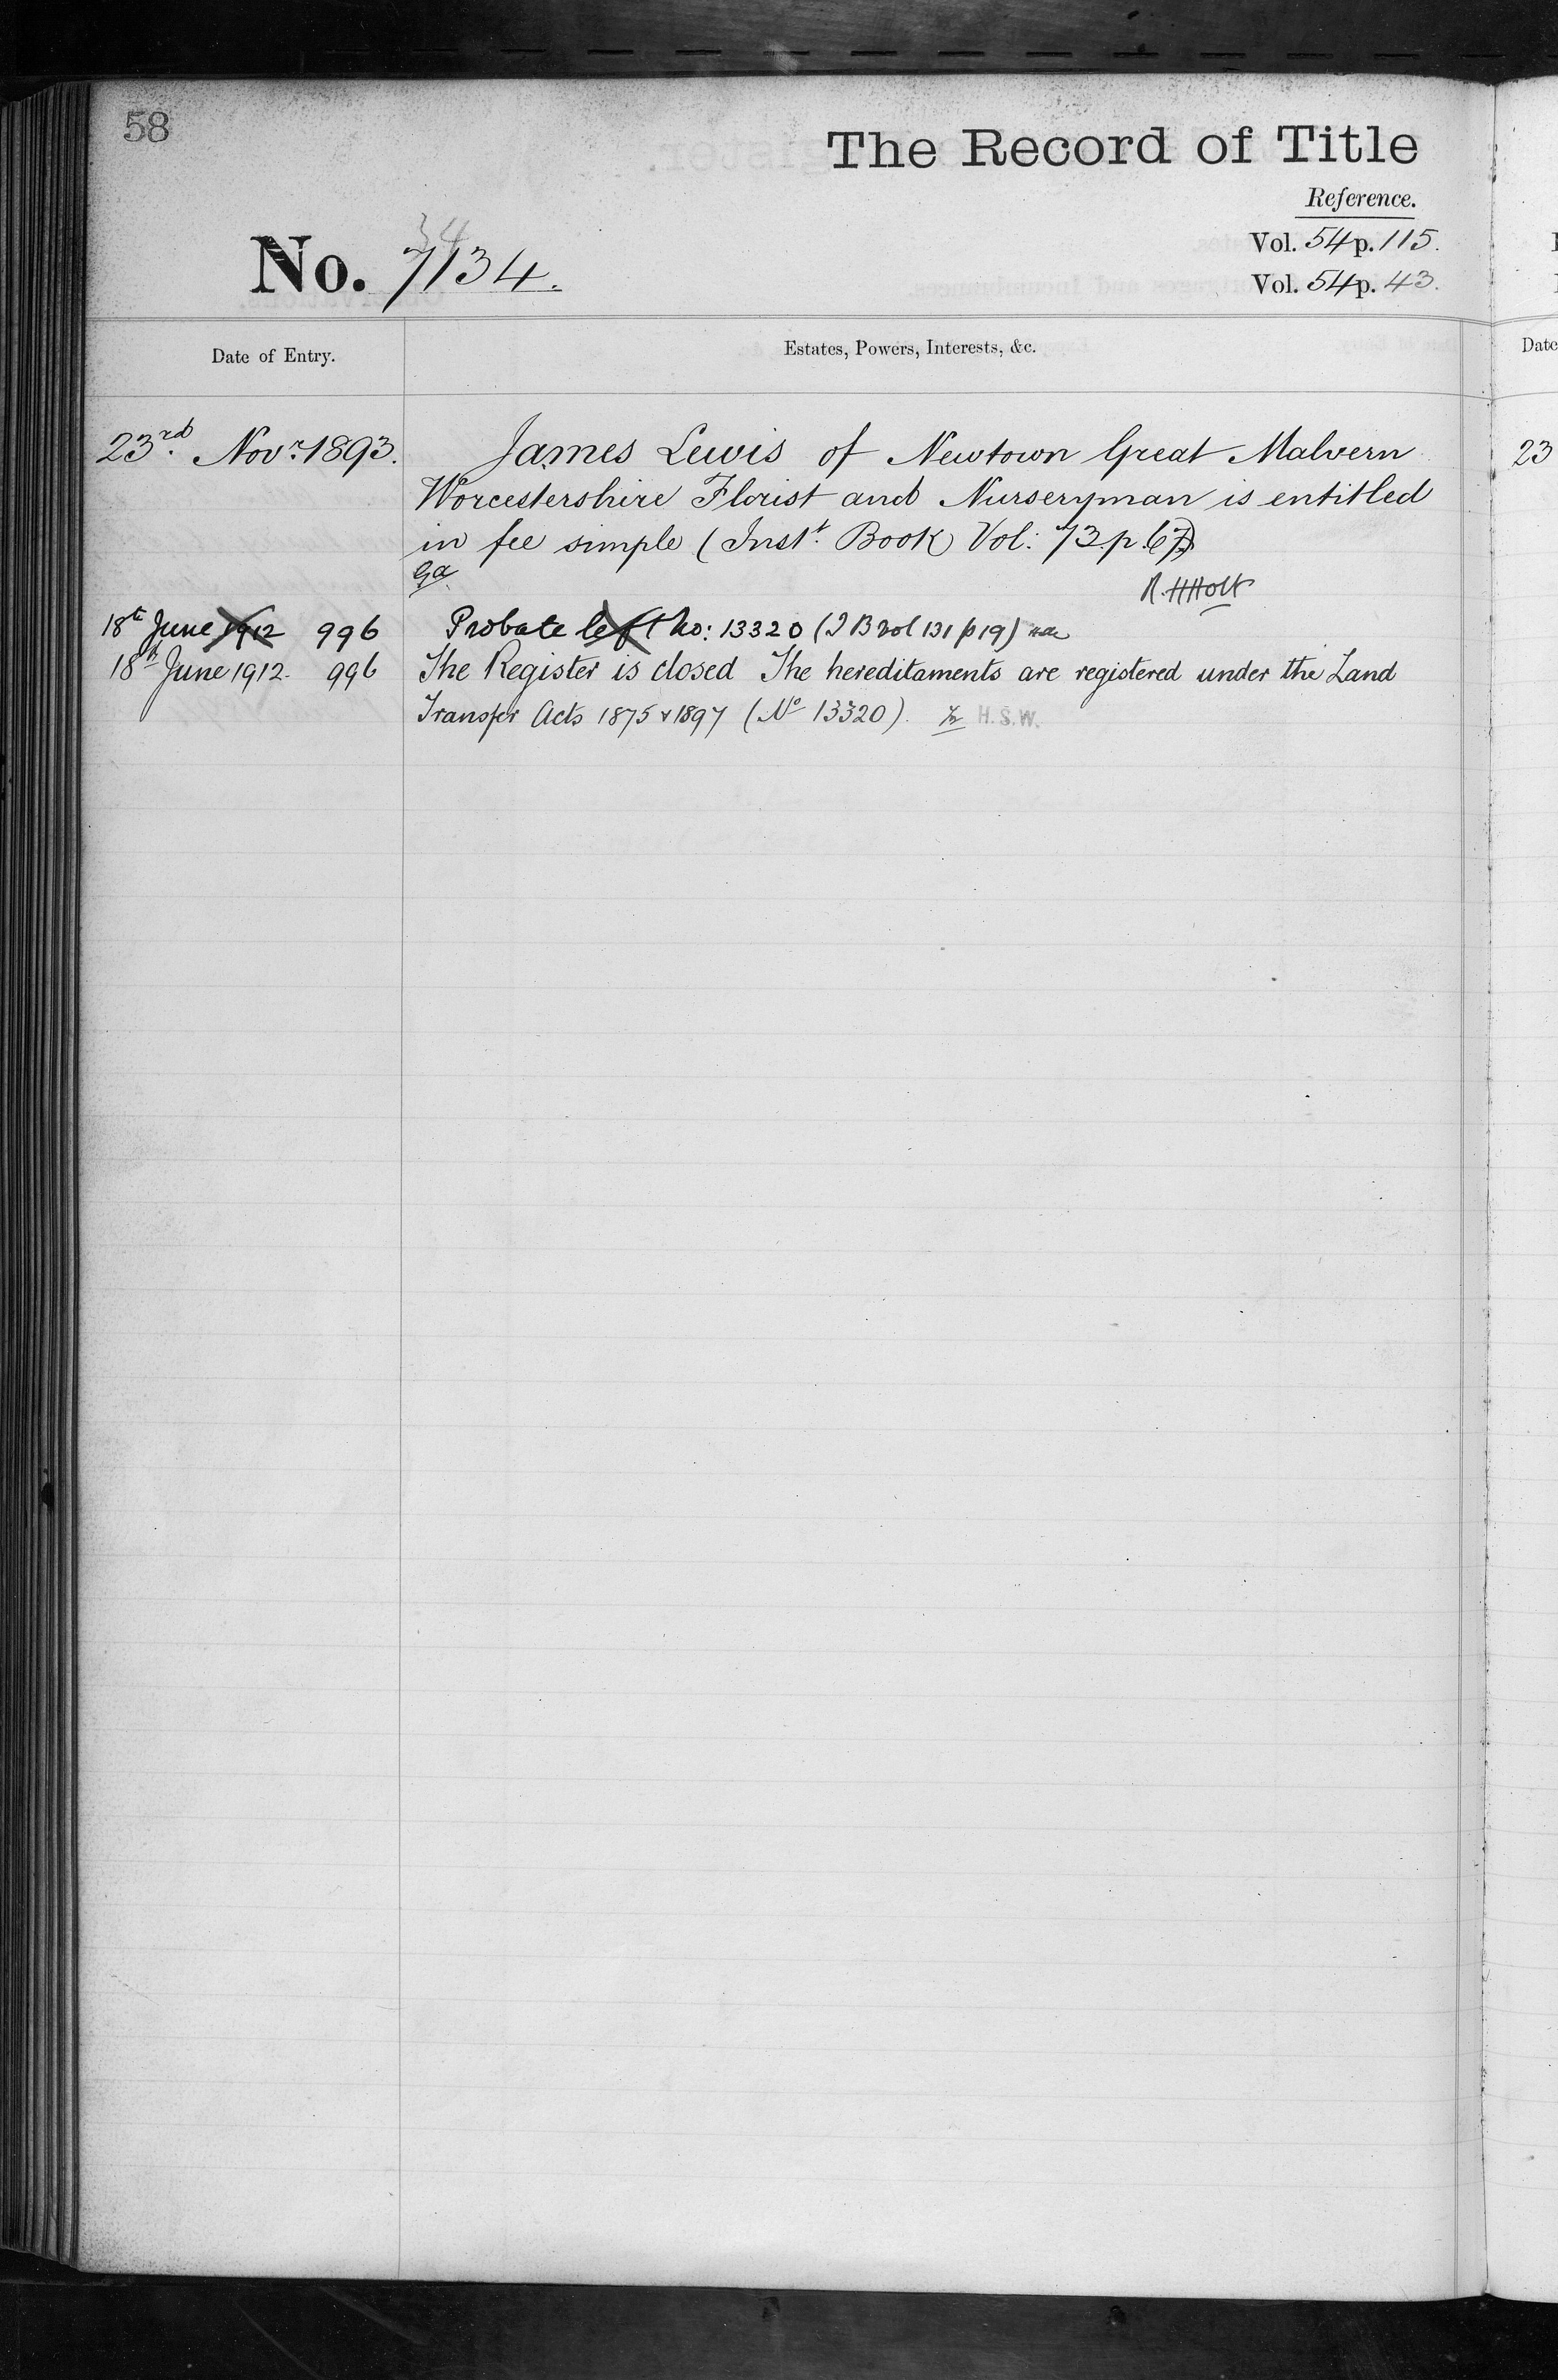 58
The Record of Title
Reference.
Vol. 54 p. 115.
Vol. 54 p. 43.
34
No. 7134.
Date of Entry.
Estates, Powers, Interests, &c.
Date
23rd. Novr. 1893.
James Lewis of Newtown Great Malvern
Worcestershire Florist and Nurseryman is entitled
in fee simple (Inst. Book Vol: 73. p. 67)
Ga
R. H Holt
18t June 1912 996 Probate left No: 13320 (I B vol 131 p 19)
18th June 1912. 996 The Register is closed The hereditaments are registered under the Land
Transfer Acts 1875 & 1897 (No 13320). H.S.W.
23